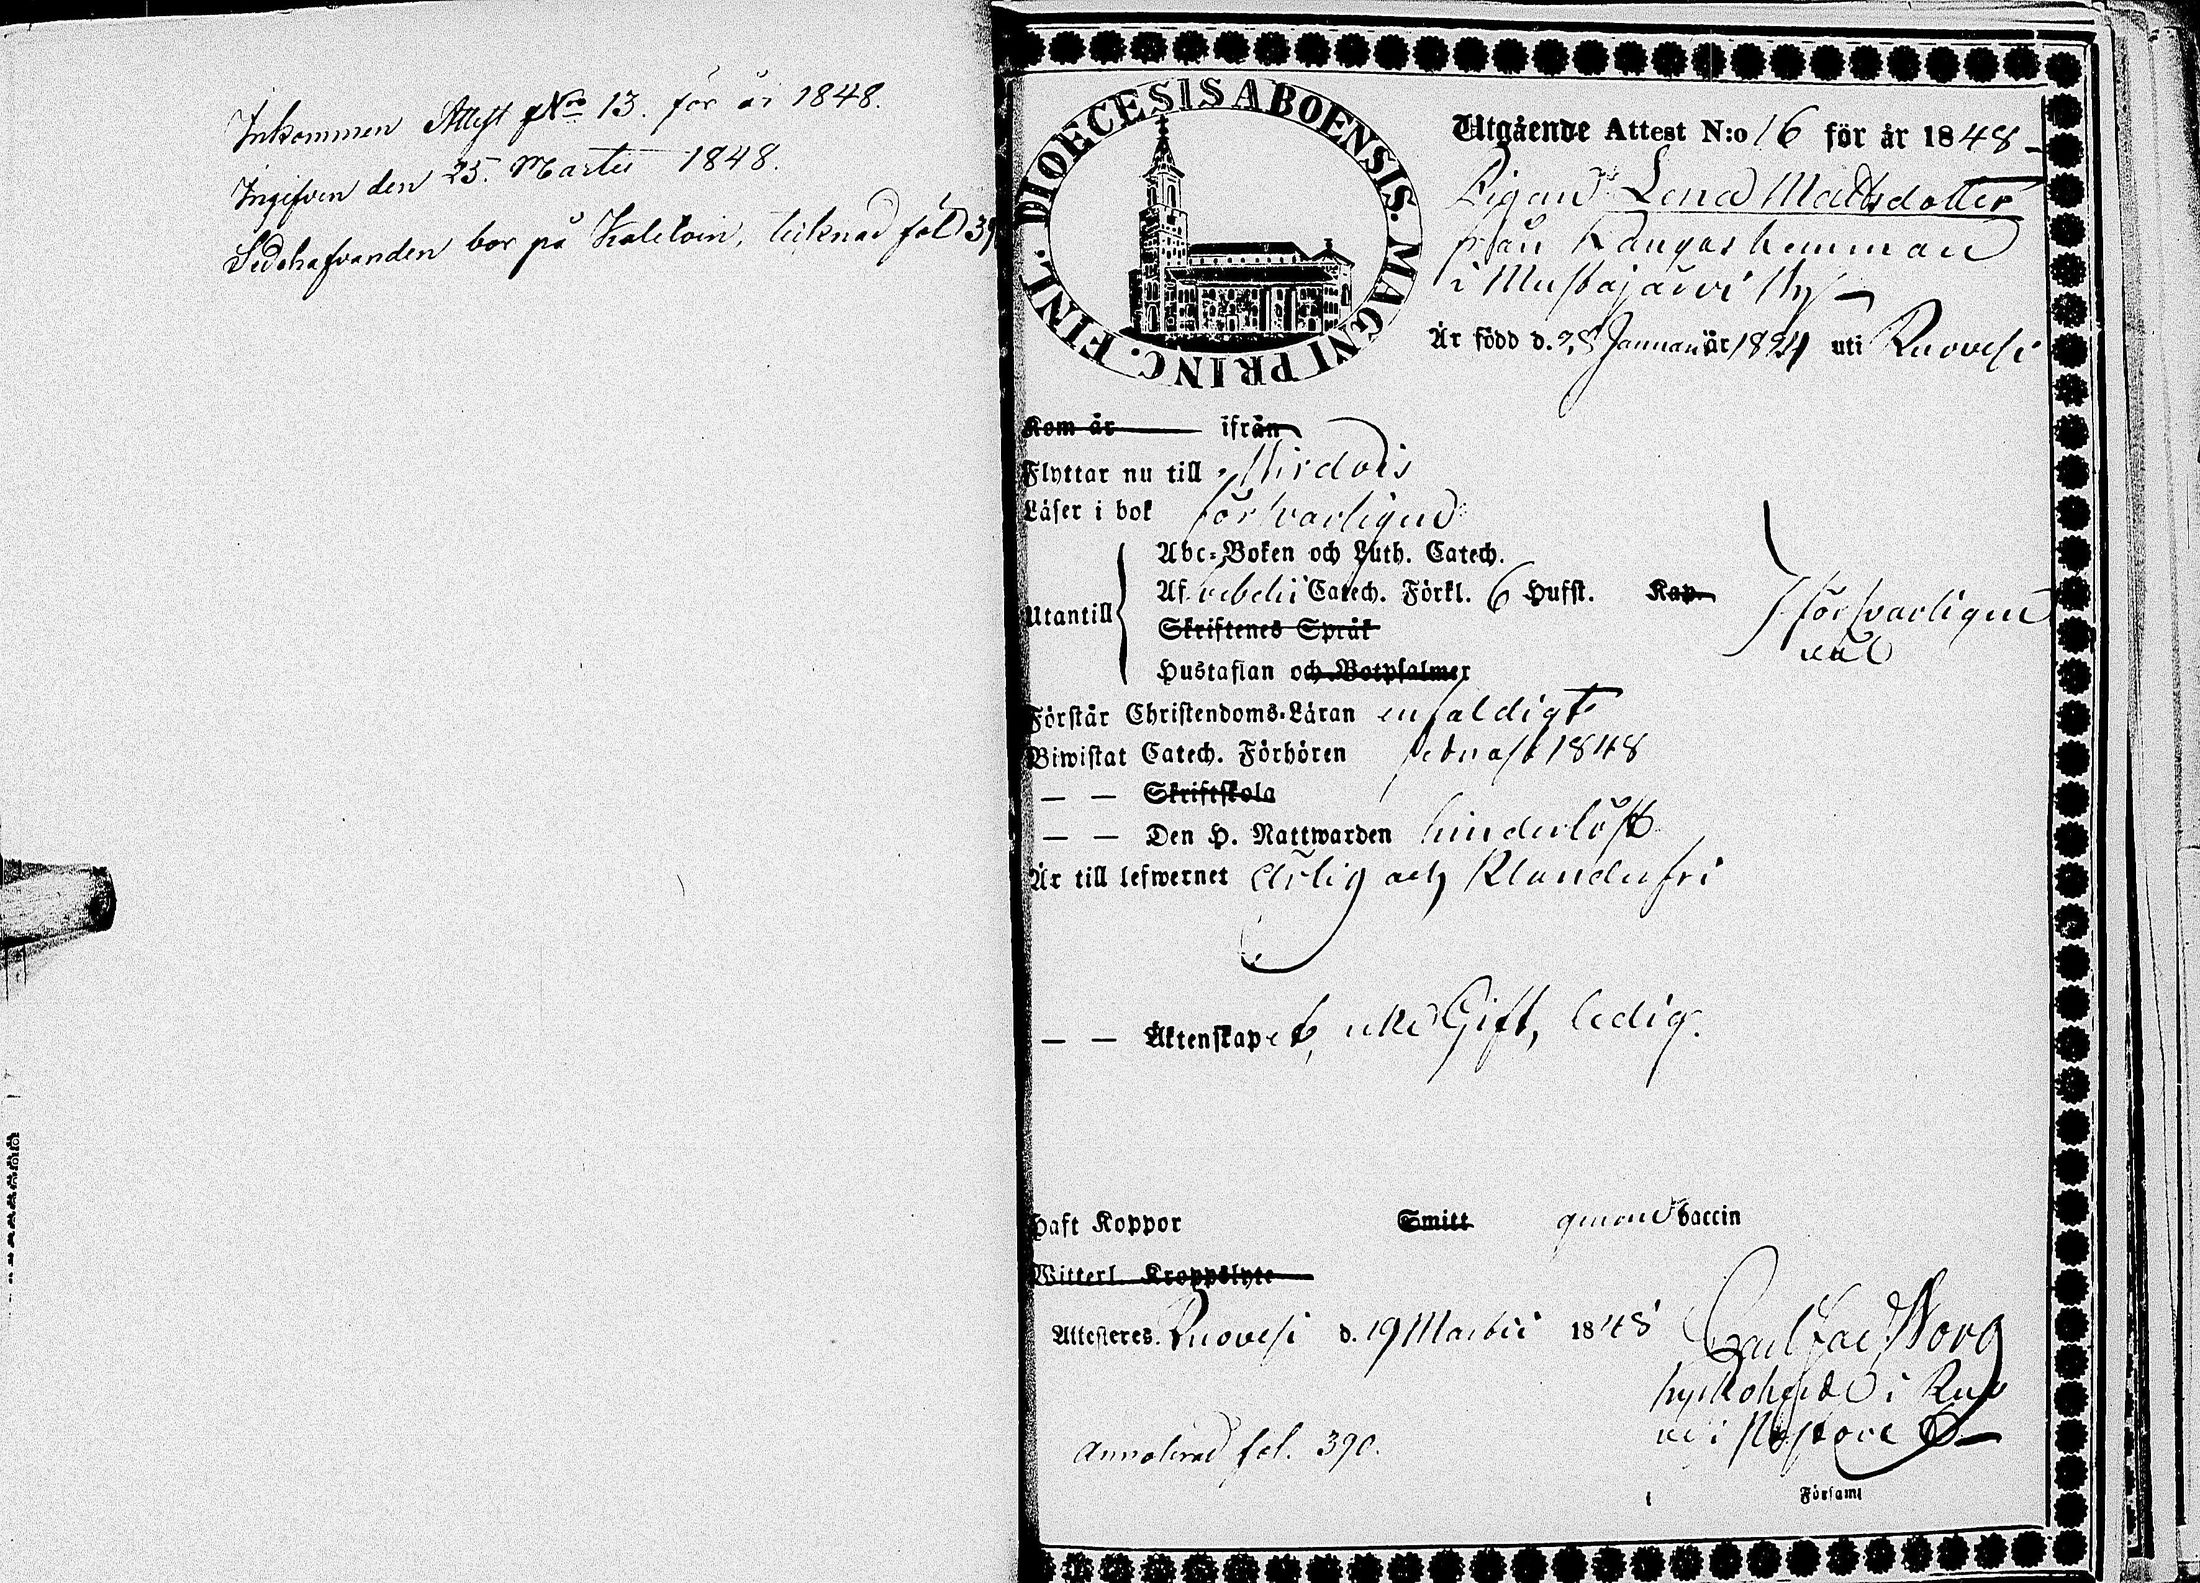 Inkommen Attest No 13. för år 1848.
Ingifven den 25. Martii 1848.
bor på teiknad fol 39
DIOECESIS ABOENSIS. MAGNI PRINC. FINL.
Utgående Attest N:o 16 för år 1848
Pigan Lena Mattsdotter
från Kangas hemman
i Mustajärvi by
Är född d. 28 Januari är 1824 uti Ruovesi
Kom år ifrån
Flyttar nu till Virdois
Läser i bok försvarligen
Abc-Boken och Luth. Catech.
Utantill
Af Svebelii Catech. Förkl. 6 Hufst. Kap. försvarligen
Skriftenes Språk
väl
Hustaflan och Botpsalmer
Förstår Christendoms-Läran enfaldigt
Biwistat Catech. Förhören sednast 1848
— — Skriftskola
— — Den H. Nattwarden hinderlöst
Är till lefwernet Ärlig och Klanderfri
— — Äktenskapet, icke Gift, ledig.
Haft Koppor Smitt genom vaccin
Witterl. Kroppslyte
Attesteres. Ruovesi d. 19 Martii 1848
Carl Borg
i Ruo
vesi Pastorat
Annoterad fol. 390.
i Församl